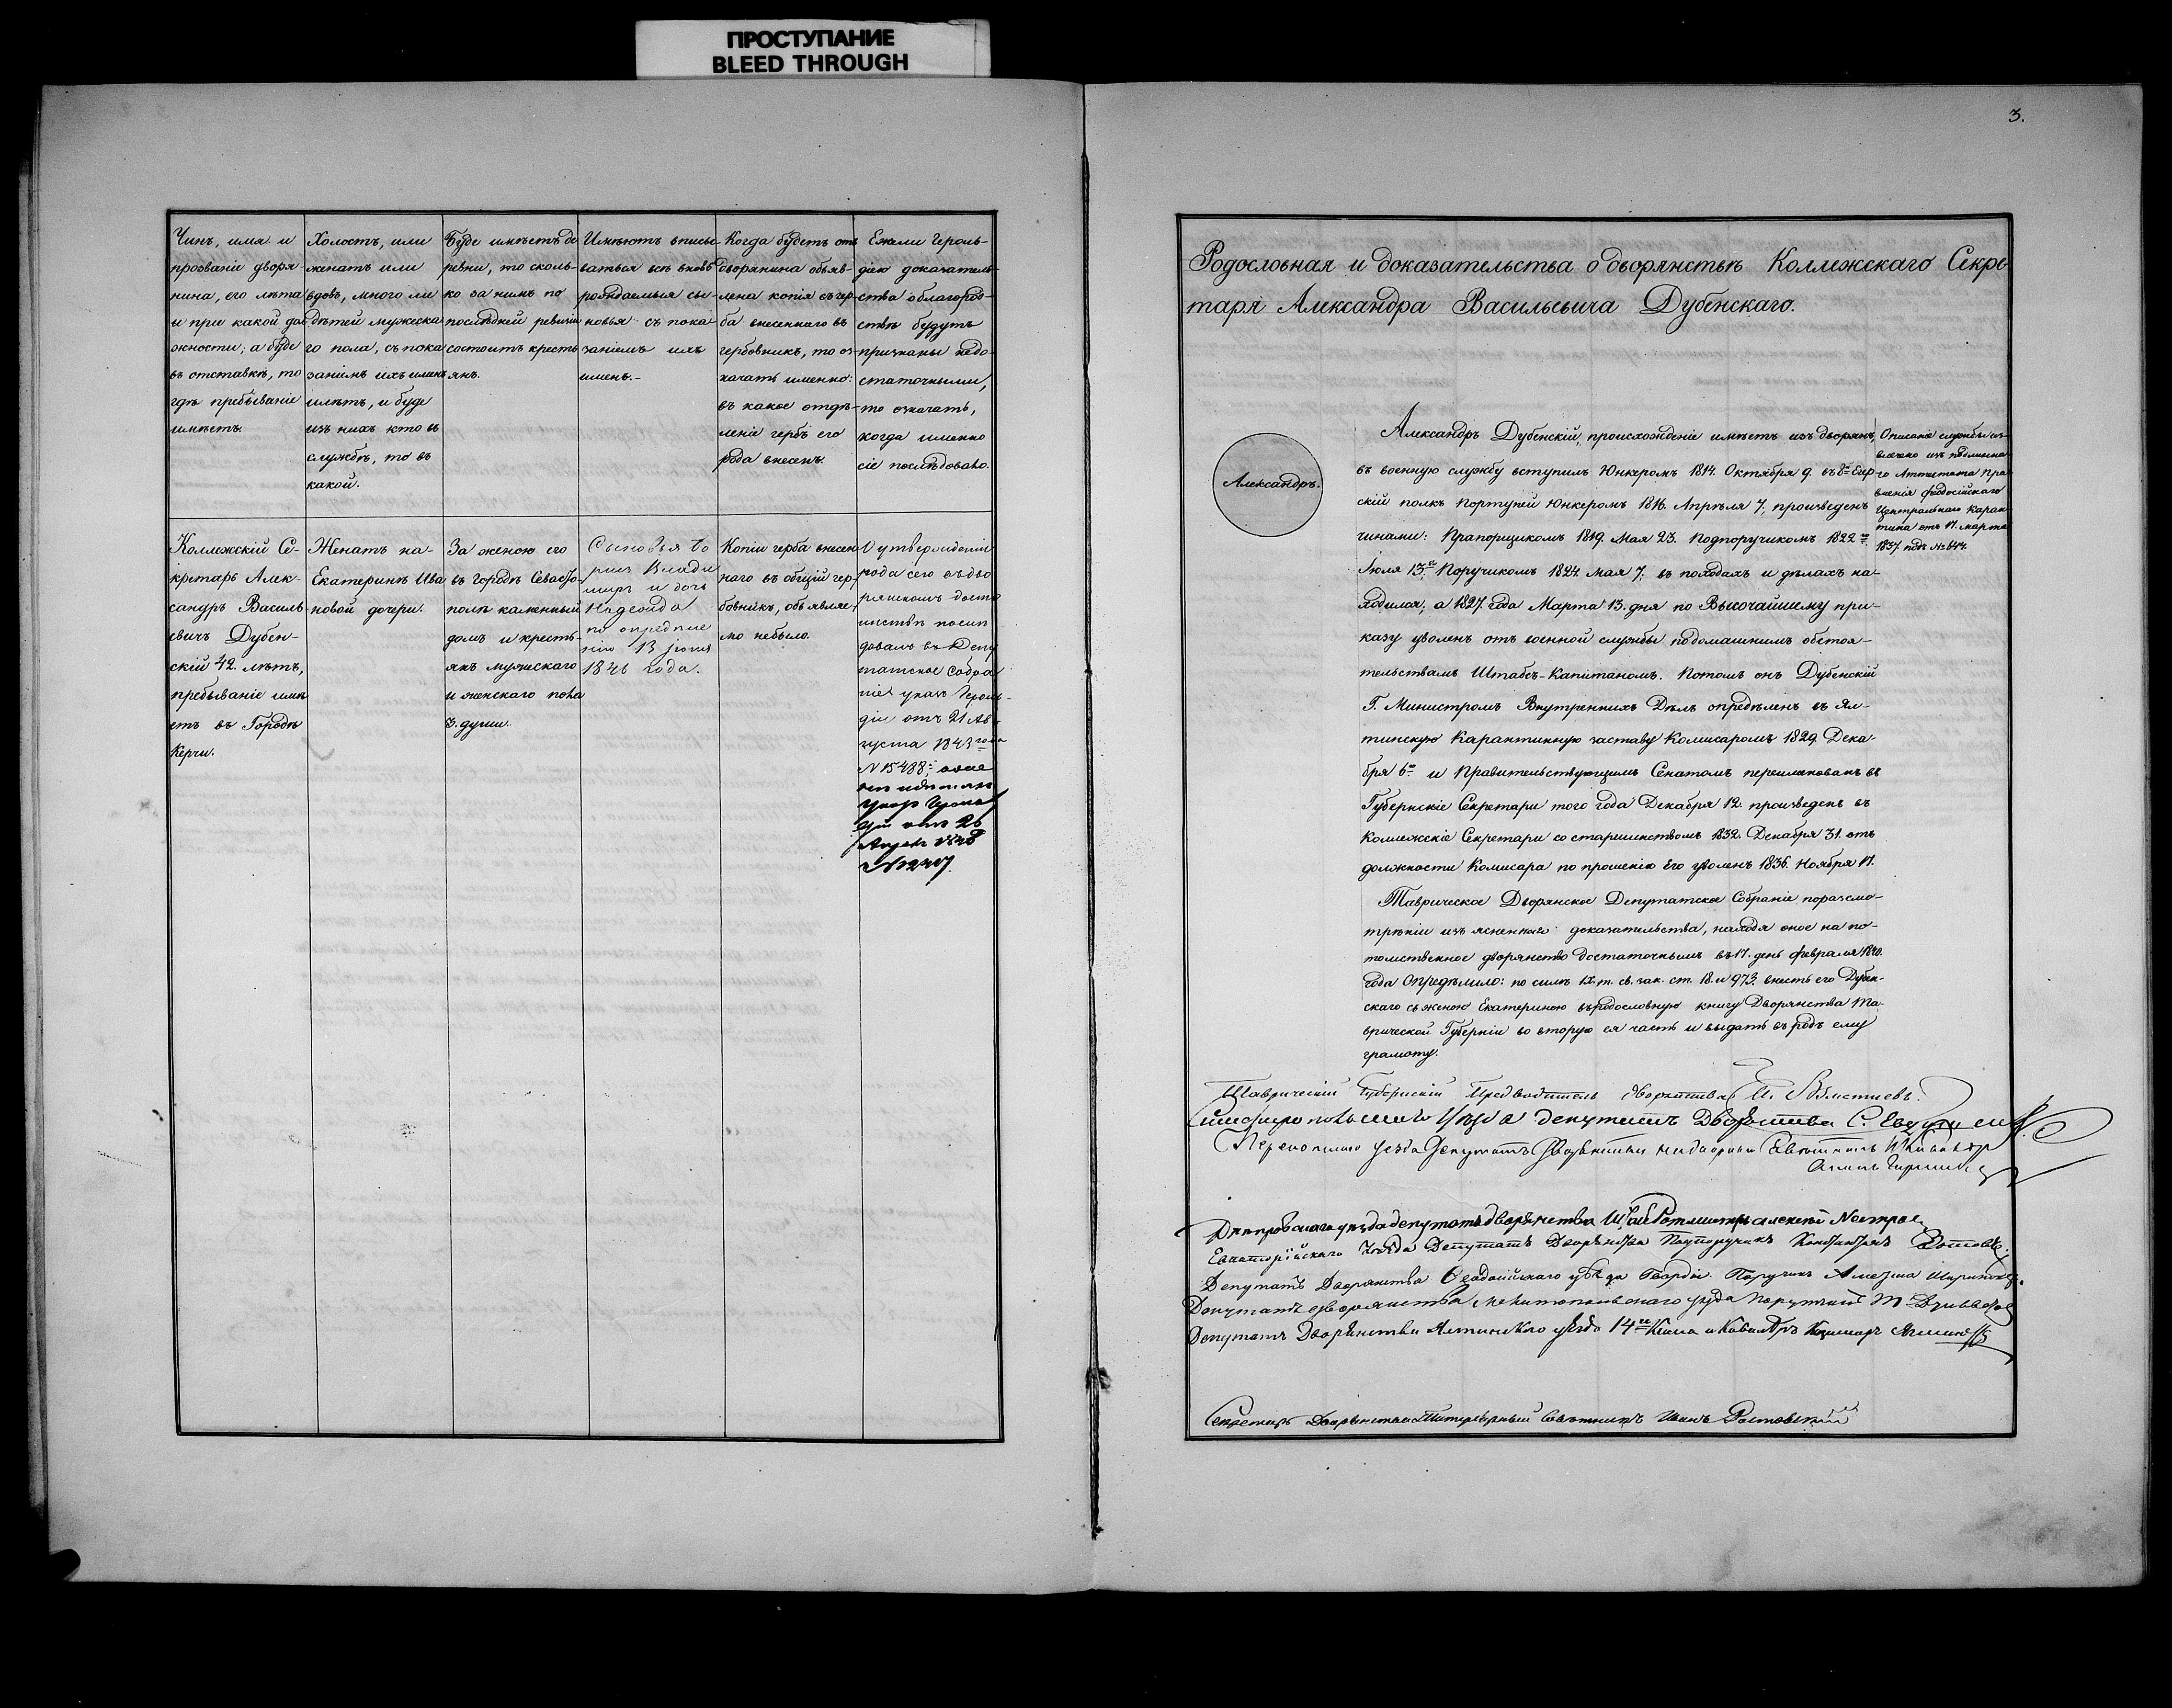 ПРОСТУПАНИЕ
BLEED THROUGH
Чинъ, имя и
прозваніе дворя-
нина, его лѣта
и при какой дол-
жности; а буде
въ отставкѣ, то
гдѣ пребываніе
имѣетъ.
Холостъ, или
женатъ или
вдовъ, много ли
дѣтей мужеска-
го пола, съ пока-
заніемъ ихъ именъ
и лѣтъ, и буде
изъ нихъ кто въ
службѣ, то въ
какой.
Буде имѣетъ де-
ревни, то сколь-
ко за нимъ по
послѣдней ревизіи
состоитъ кресть-
янъ.
Имѣютъ вписы-
ваться всѣ вновь
рождаемыя сы-
новья съ пока-
заніемъ ихъ
именъ.-
Когда будетъ отъ
дворянина объяв-
лена копія съ гер-
ба внесеннаго въ
гербовникъ, то оз-
начать именно:
въ какое отдѣ-
леніе гербъ его
рода внесенъ.
Ежели Героль-
діею доказатель-
ства о благород-
ствѣ будутъ
признаны недо-
статочными,
то означать,
когда именно
сіе послѣдовало.
Коллежскій Се-
кретарь Алек-
сандръ Василь-
евичъ Дубен-
скій 42. лѣтъ,
пребываніе имѣ-
етъ въ Городѣ
Керчи.
Женатъ на-
Екатеринѣ Ива-
новой дочери.
За женою его
въ городѣ Севасто-
полѣ каменный
домъ и кресть-
янъ мужескаго
и женскаго пола
3. души.
Сыновья Бо
рисъ Влади
миръ и дочь
Надежда
по опредѣле
нію 13 Іюня
1846 года.
Копіи герба внесен-
наго въ общій гер-
бовникъ, объявляе-
мо небыло.
О утвержденіи
рода сего въ дво
рянскомъ досто
инствѣ послѣ
довалъ въ Депу
татское Собра
ніе указъ Героль-
діи отъ 21 Ав-
густа 1843 года
N 15488;
отъ 26
Родословная и доказательства о дворянствѣ Коллежскаго Секре-
таря Александра Васильевича Дубенскаго.
3.
Александръ.
Александръ Дубенскій, происхожденіе имѣетъ изъ дворянъ,
въ военную службу вступилъ Юнкеромъ 1814. Октября 9. въ 8й Егер-
скій полкъ Портупей Юнкеромъ 1816. Апрѣля 7; произведенъ
чинами: Прапорщикомъ 1819. Мая 23. Подпоручикомъ 1822го
Іюля 13го, Поручикомъ 1824. Мая 7; въ походахъ и дѣлахъ на-
ходился; а 1827. года Марта 13. дня по Высочайшему при-
казу уволенъ отъ военной службы по домашнимъ обстоя-
тельствамъ Штабсъ-Капитаномъ. Потомъ онъ Дубенскій
Г. Министромъ Внутреннихъ Дѣлъ опредѣленъ въ Ял-
тинскую Карантинную заставу Комисаромъ 1829. Дека-
бря 6го и Правительствующимъ Сенатомъ переименованъ въ
Губернскіе Секретари того года Декабря 12. произведенъ въ
Коллежскіе Секретари со старшинствомъ 1832. Декабря 31. отъ
должности Комисара по прошенію Его уволенъ 1836. Ноября 17.
Таврическое Дворянское Депутатское Собраніе поразсмо-
трѣніи изъясненнаго доказательства, находя оное на по-
томственное дворянство достаточнымъ въ 17. день февраля 1840.
года Опредѣлило: по силѣ IX. т. св. зак. ст. 18. и 973. внесть его Дубен-
скаго съ женою Екатериною въ родословную книгу Дворянства Та-
врической Губерніи во вторую ея часть и выдать въ родъ ему
грамоту.
Описаніе службы из-
влечено изъ подлинна-
го Аттестата Пра-
вленія феодосійскаго
Центральнаго Каран-
тина отъ 17. марта
1837 подъ № 644.
Таврическій Губернскій Предводитель дворянства
Симферопольскаго Уѣзда депутатъ Дворянства С.
Перекопскаго уѣзда Депутатъ Дворянства надворный Совѣтникъ и Кавалеръ
Днѣпровскаго уѣзда депутатъ дворянства Штабъ Ротмистръ Алексѣй
Евпаторійскаго Уѣзда Депутатъ Дворянства Подпоручикъ Константинъ
Депутатъ Дворянства Ѳеодосійскаго уѣзда Гвардіи Поручикъ
Депутатъ дворянства Мелитопольскаго уѣзда Поручикъ
Депутатъ Дворянства Ялтинскаго уѣзда 14го Класса и Кавалеръ
Секретарь Дворянства Титулярный Совѣтникъ Иванъ Ростовскій